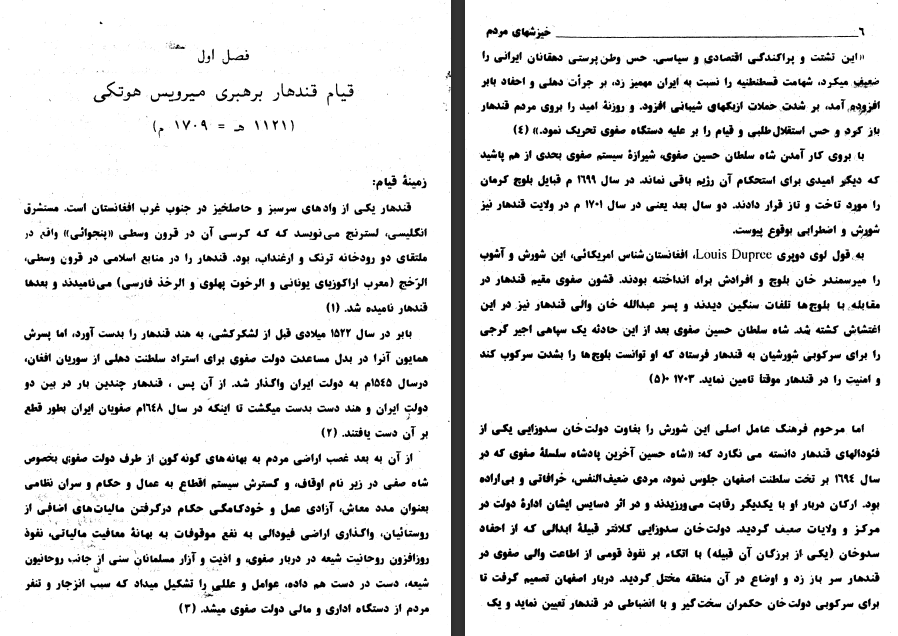 فصل اول
قیام قندهار برهبری میرویس هوتکی
(۱۱۲۱ هـ = ۱۷۰۹ م)
زمینهٔ قیام:
قندهار یکی از وادهای سرسبز و حاصلخیز در جنوب غرب افغانستان است. مستشرق
انگلیسی، لسترنج می‌نویسد که که کرسی آن در قرون وسطی «پنجوائی» واقع در
ملتقای دو رودخانه ترنک و ارغنداب، بود. قندهار را در منابع اسلامی در قرون وسطی،
الرخج (معرب اراکوزیای یونانی و الرخوت پهلوی و الرخذ فارسی) می‌نامیدند و بعدها
قندهار نامیده شد. (۱)
بابر در سال ۱۵۲۲ میلادی قبل از لشکرکشی، به هند قندهار را بدست آورد، اما پسرش
همایون آنرا در بدل مساعدت دولت صفوی برای استراد سلطنت دهلی از سوریان افغان،
درسال ۱۵۴۵م به دولت ایران واگذار شد. از آن پس ، قندهار چندین بار در بین دو
دولت ایران و هند دست بدست میگشت تا اینکه در سال ۱۶۴۸م صفویان ایران بطور قطع
بر آن دست یافتند. (۲)
از آن به بعد غصب اراضی مردم به بهانه‌های گونه‌گون از طرف دولت صفوی بخصوص
شاه صفی در زیر نام اوقاف، و گسترش سیستم اقطاع به عمال و حکام و سران نظامی
بعنوان مدد معاش، آزادی عمل و خودکامگی حکام درگرفتن مالیات‌های اضافی از
روستائیان، واگذاری اراضی فیودالی به نفع موقوفات به بهانهٔ معافیت مالیاتی، نفوذ
روزافزون روحانیت شیعه در دربار صفوی، و اذیت و آزار مسلمانان سنی از جانب روحانیون
شیعه، دست در دست هم داده، عوامل و عللی را تشکیل میداد که سبب انزجار و تنفر
مردم از دستگاه اداری و مالی دولت صفوی میشد. (۳)
۶ خیزشهای مردم
«این تشتت و پراکندگی اقتصادی و سیاسی. حس وطن‌پرستی دهقانان ایرانی را
ضعیف میکرد، شهامت قسطنطنیه را نسبت به ایران مهمیز زد، بر جرأت دهلی و احفاد بابر
افزوده آمد، بر شدت حملات ازبکهای شیبانی افزود. و روزنهٔ امید را بروی مردم قندهار
باز کرد و حس استقلال‌طلبی و قیام را بر علیه دستگاه صفوی تحریک نمود.» (۴)
با بروی کار آمدن شاه سلطان حسین صفوی، شیرازهٔ سیستم صفوی بحدی از هم پاشید
که دیگر امیدی برای استحکام آن رژیم باقی نماند. در سال ۱۶۹۹ م قبایل بلوچ کرمان
را مورد تاخت و تاز قرار دادند. دو سال بعد یعنی در سال ۱۷۰۱ م در ولایت قندهار نیز
شورش و اضطرابی بوقوع پیوست.
به قول لوی دوپری Louis Dupree، افغانستان‌شناس امریکائی، این شورش و آشوب
را میرسمندر خان بلوچ و افرادش براه انداخته بودند. قشون صفوی مقیم قندهار در
مقابله با بلوچ‌ها تلفات سنگین دیدند و پسر عبدالله خان والی قندهار نیز در این
اغتشاش کشته شد. شاه سلطان حسین صفوی بعد از این حادثه یک سپاهی اجیر گرجی
را برای سرکوبی شورشیان به قندهار فرستاد که او توانست بلوچ‌ها را بشدت سرکوب کند
و امنیت را در قندهار موقتاً تامین نماید. ۱۷۰۳ ۰(۵)
اما مرحوم فرهنگ عامل اصلی این شورش را بغاوت دولت‌خان سدوزایی یکی از
فئودالهای قندهار دانسته می نگارد که: «شاه حسین آخرین پادشاه سلسلهٔ صفوی که در
سال ۱۶۹۴ بر تخت سلطنت اصفهان جلوس نمود، مردی ضعیف‌النفس، خرافاتی و بی‌اراده
بود. ارکان دربار او با یکدیگر رقابت می‌ورزیدند و در اثر دسایس ایشان ادارهٔ دولت در
مرکز و ولایات ضعیف گردید. دولت‌خان سدوزایی کلانتر قبیلهٔ ابدالی که از احفاد
سدوخان (یکی از برزگان آن قبیله) با اتکاء بر نفوذ قومی از اطاعت والی صفوی در
قندهار سر باز زد و اوضاع در آن منطقه مختل گردید. دربار اصفهان تصمیم گرفت تا
برای سرکوبی دولت‌خان حکمران سخت‌گیر و با انضباطی در قندهار تعیین نماید و یک